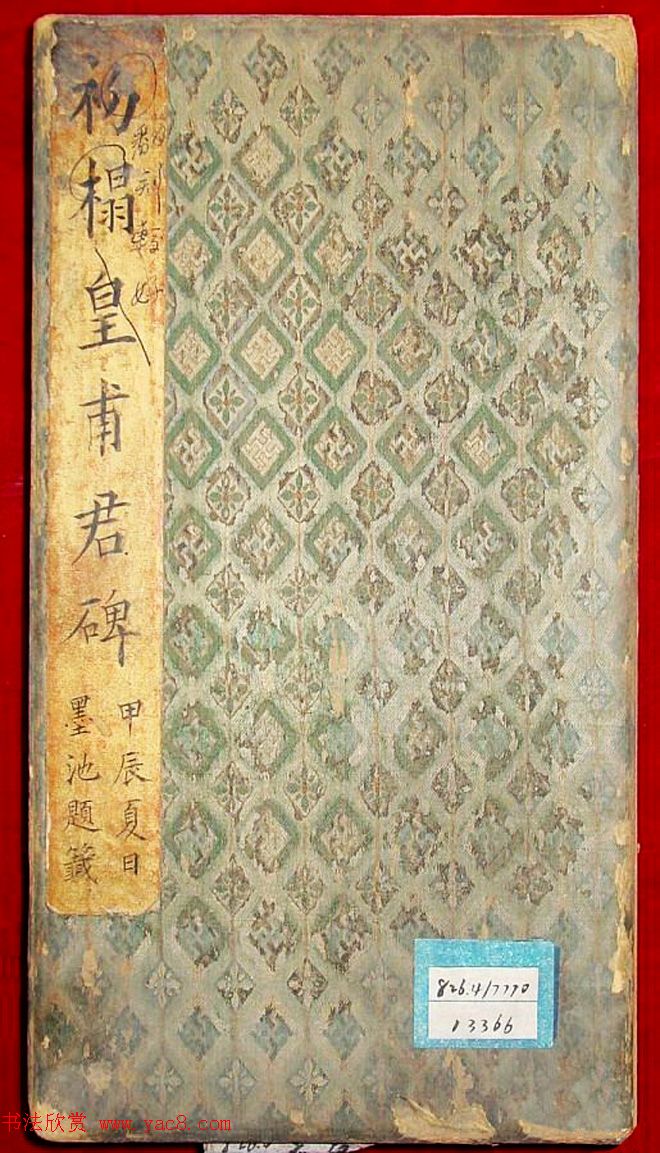 初榻皇甫君碑
甲辰夏日
墨池題籤
826.4/7770
13366
书法欣赏 www.yac8.com